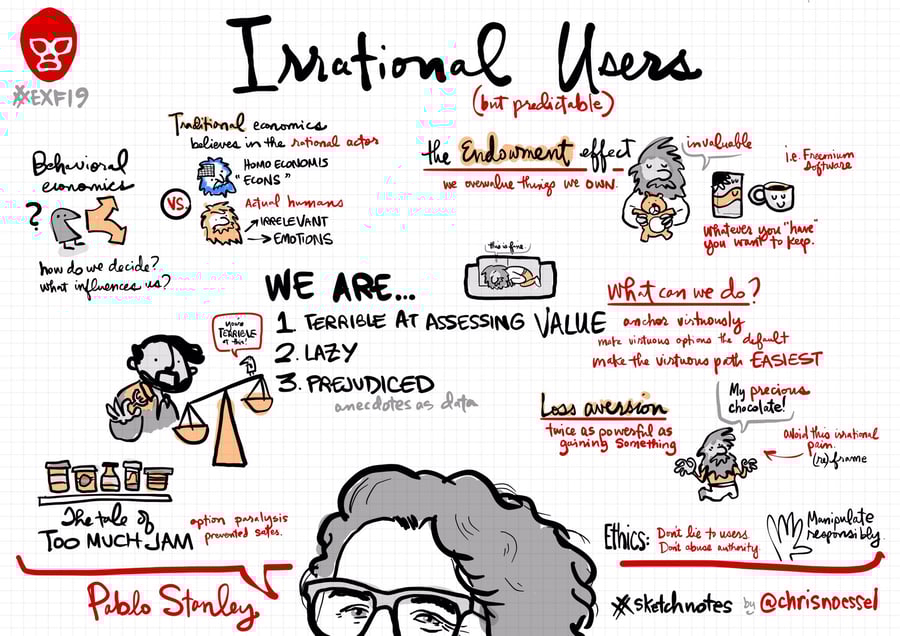 Irrational Users
(but predictable)
#EXF19
Behavioral
economics
?
how do we decide?
what influences us?
VS
Traditional economics
believes in the rational actor
HOMO ECONOMIS
"ECONS"
Actual humans
IRRELEVANT
EMOTIONS
the Endowment effect
we overvalue things we own.
invaluable
i.e. Freemium
Software
Whatever you "have"
you want to keep.
this is fine.
WE ARE...
1 TERRIBLE AT ASSESSING VALUE
2. LAZY
3. PREJUDICED
anecdotes as data
you're
TERRIBLE
at this!
What can we do?
anchor virtuously
make virtuous options the default
make the virtuous path EASIEST
Loss aversion
twice as powerful as
gaining something
My precious
chocolate!
avoid this irrational
pain.
(re)frame
The tale of
TOO MUCH JAM
option paralysis
prevented sales.
Ethics:
Don't lie to users.
Don't abuse authority.
Manipulate
responsibly.
Pablo Stanley
#sketchnotes by @chrisnoessel